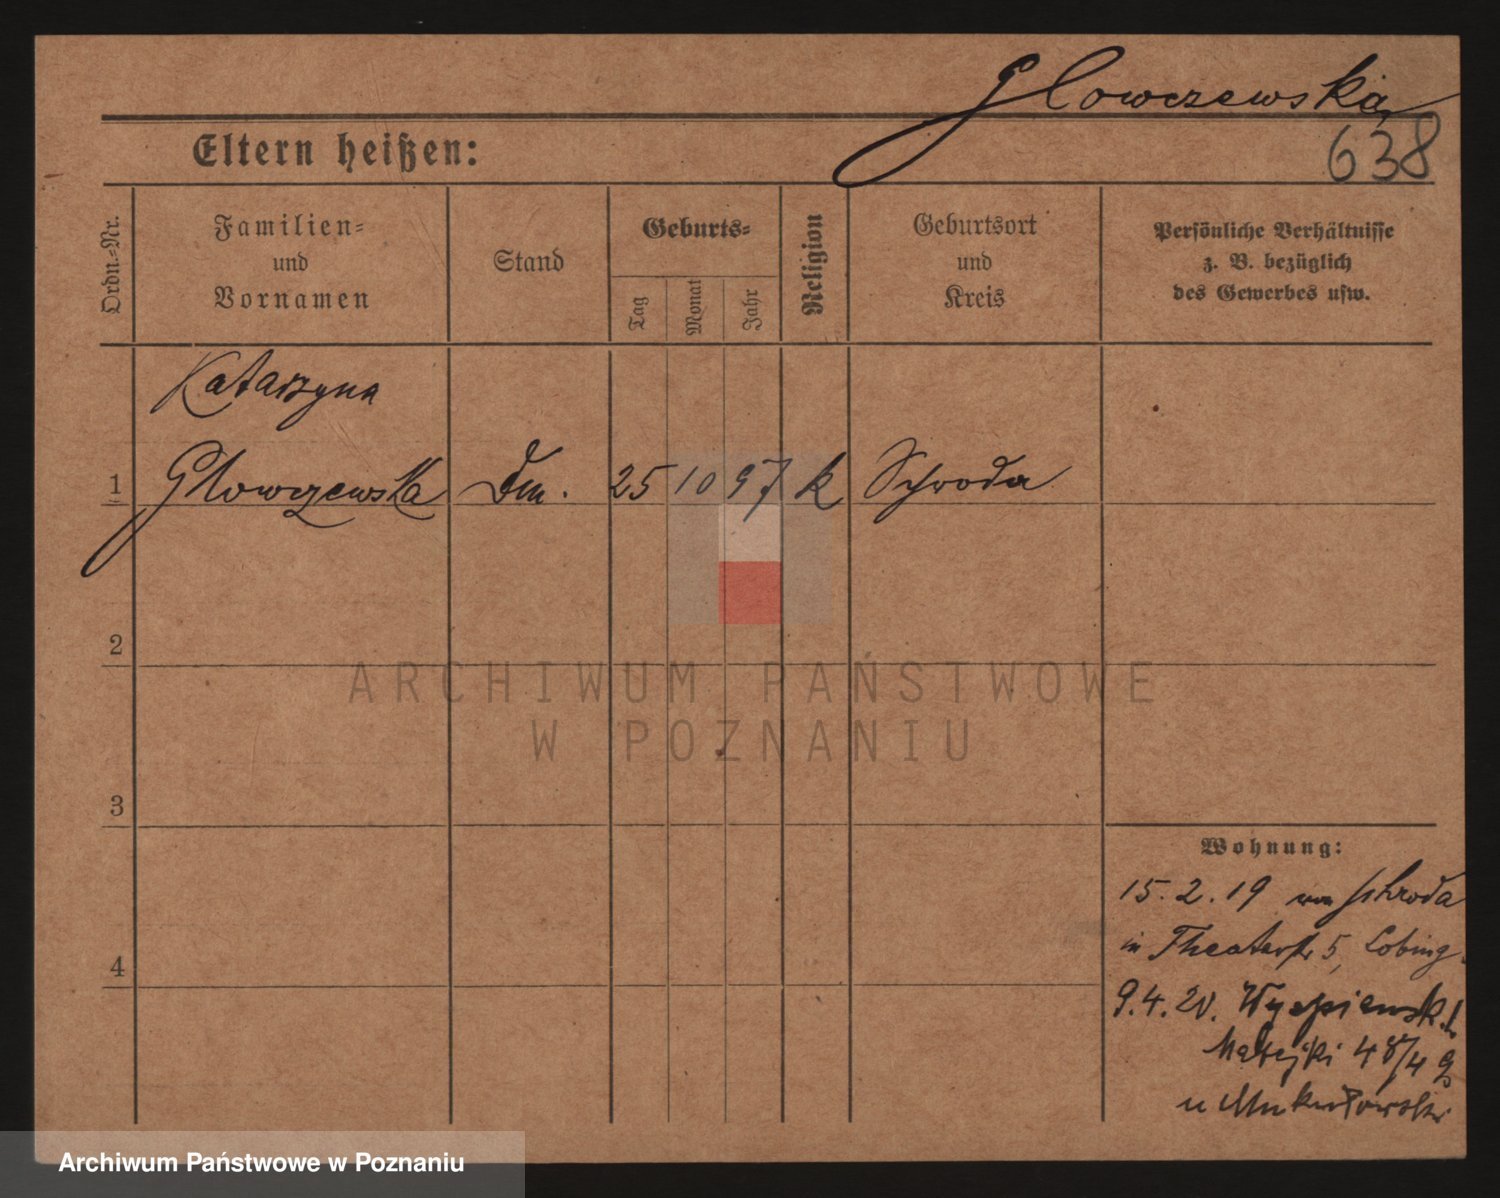 Glowczewska
638
Eltern heißen:
Ordn.-Nr.
Familien-
und
Vornamen
Stand
Geburts-
Tag
Monat
Jahr
Religion
Geburtsort
und
Kreis
Persönliche Verhältnisse
z. B. bezüglich
des Gewerbes usw.
Katarzyna
1 Glowczewska Dm. 25 10 97 k Schroda
2
3
4
Wohnung:
15.2.19 von Schroda
in Theaterstr 5, Lobing
9.4.20. Wyspiewsk.
Matejki 48/49
u
ARCHIWUM PAŃSTWOWE
W POZNANIU
Archiwum Państwowe w Poznaniu